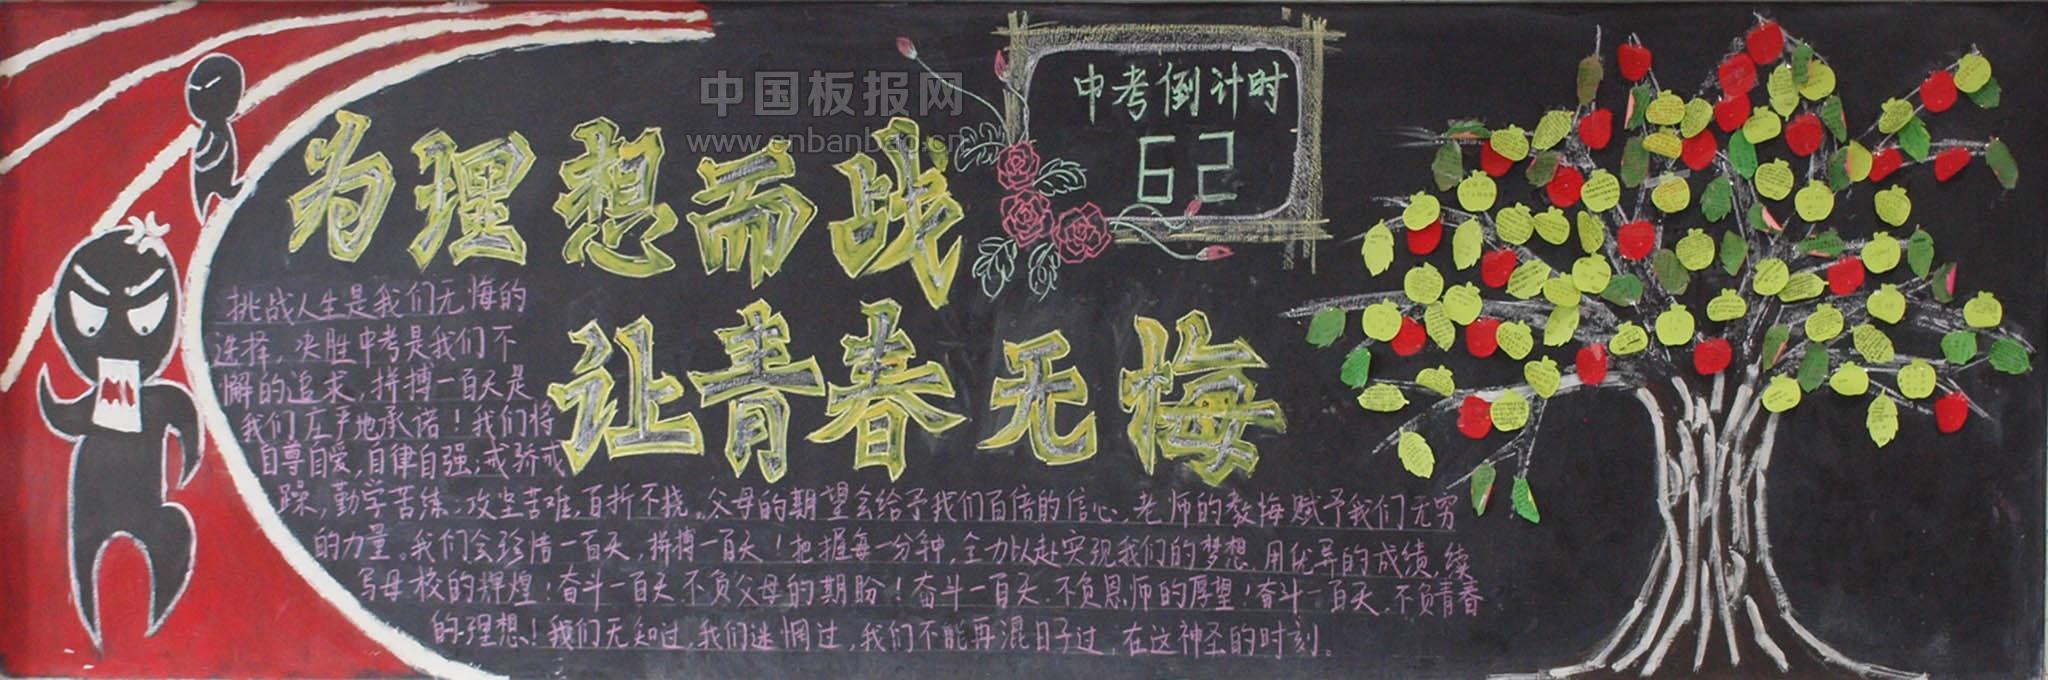 中国板报网
www.cnbanbao.cn
中考倒计时
62
为理想而战
让青春无悔
挑战人生是我们无悔的
选择，决胜中考是我们不
懈的追求，拼搏一百天是
我们庄严地承诺！我们将
自尊自爱，自律自强；戒骄戒
躁，勤学苦练，攻坚苦难，百折不挠。父母的期望会给予我们百倍的信心，老师的教悔赋予我们无穷
的力量。我们会珍惜一百天，拼搏一百天！把握每一分钟，全力以赴实现我们的梦想，用优异的成绩，续
写母校的辉煌！奋斗一百天，不负父母的期盼！奋斗一百天，不负恩师的厚望！奋斗一百天，不负青春
的理想！我们无知过，我们迷惘过，我们不能再混日子过，在这神圣的时刻。